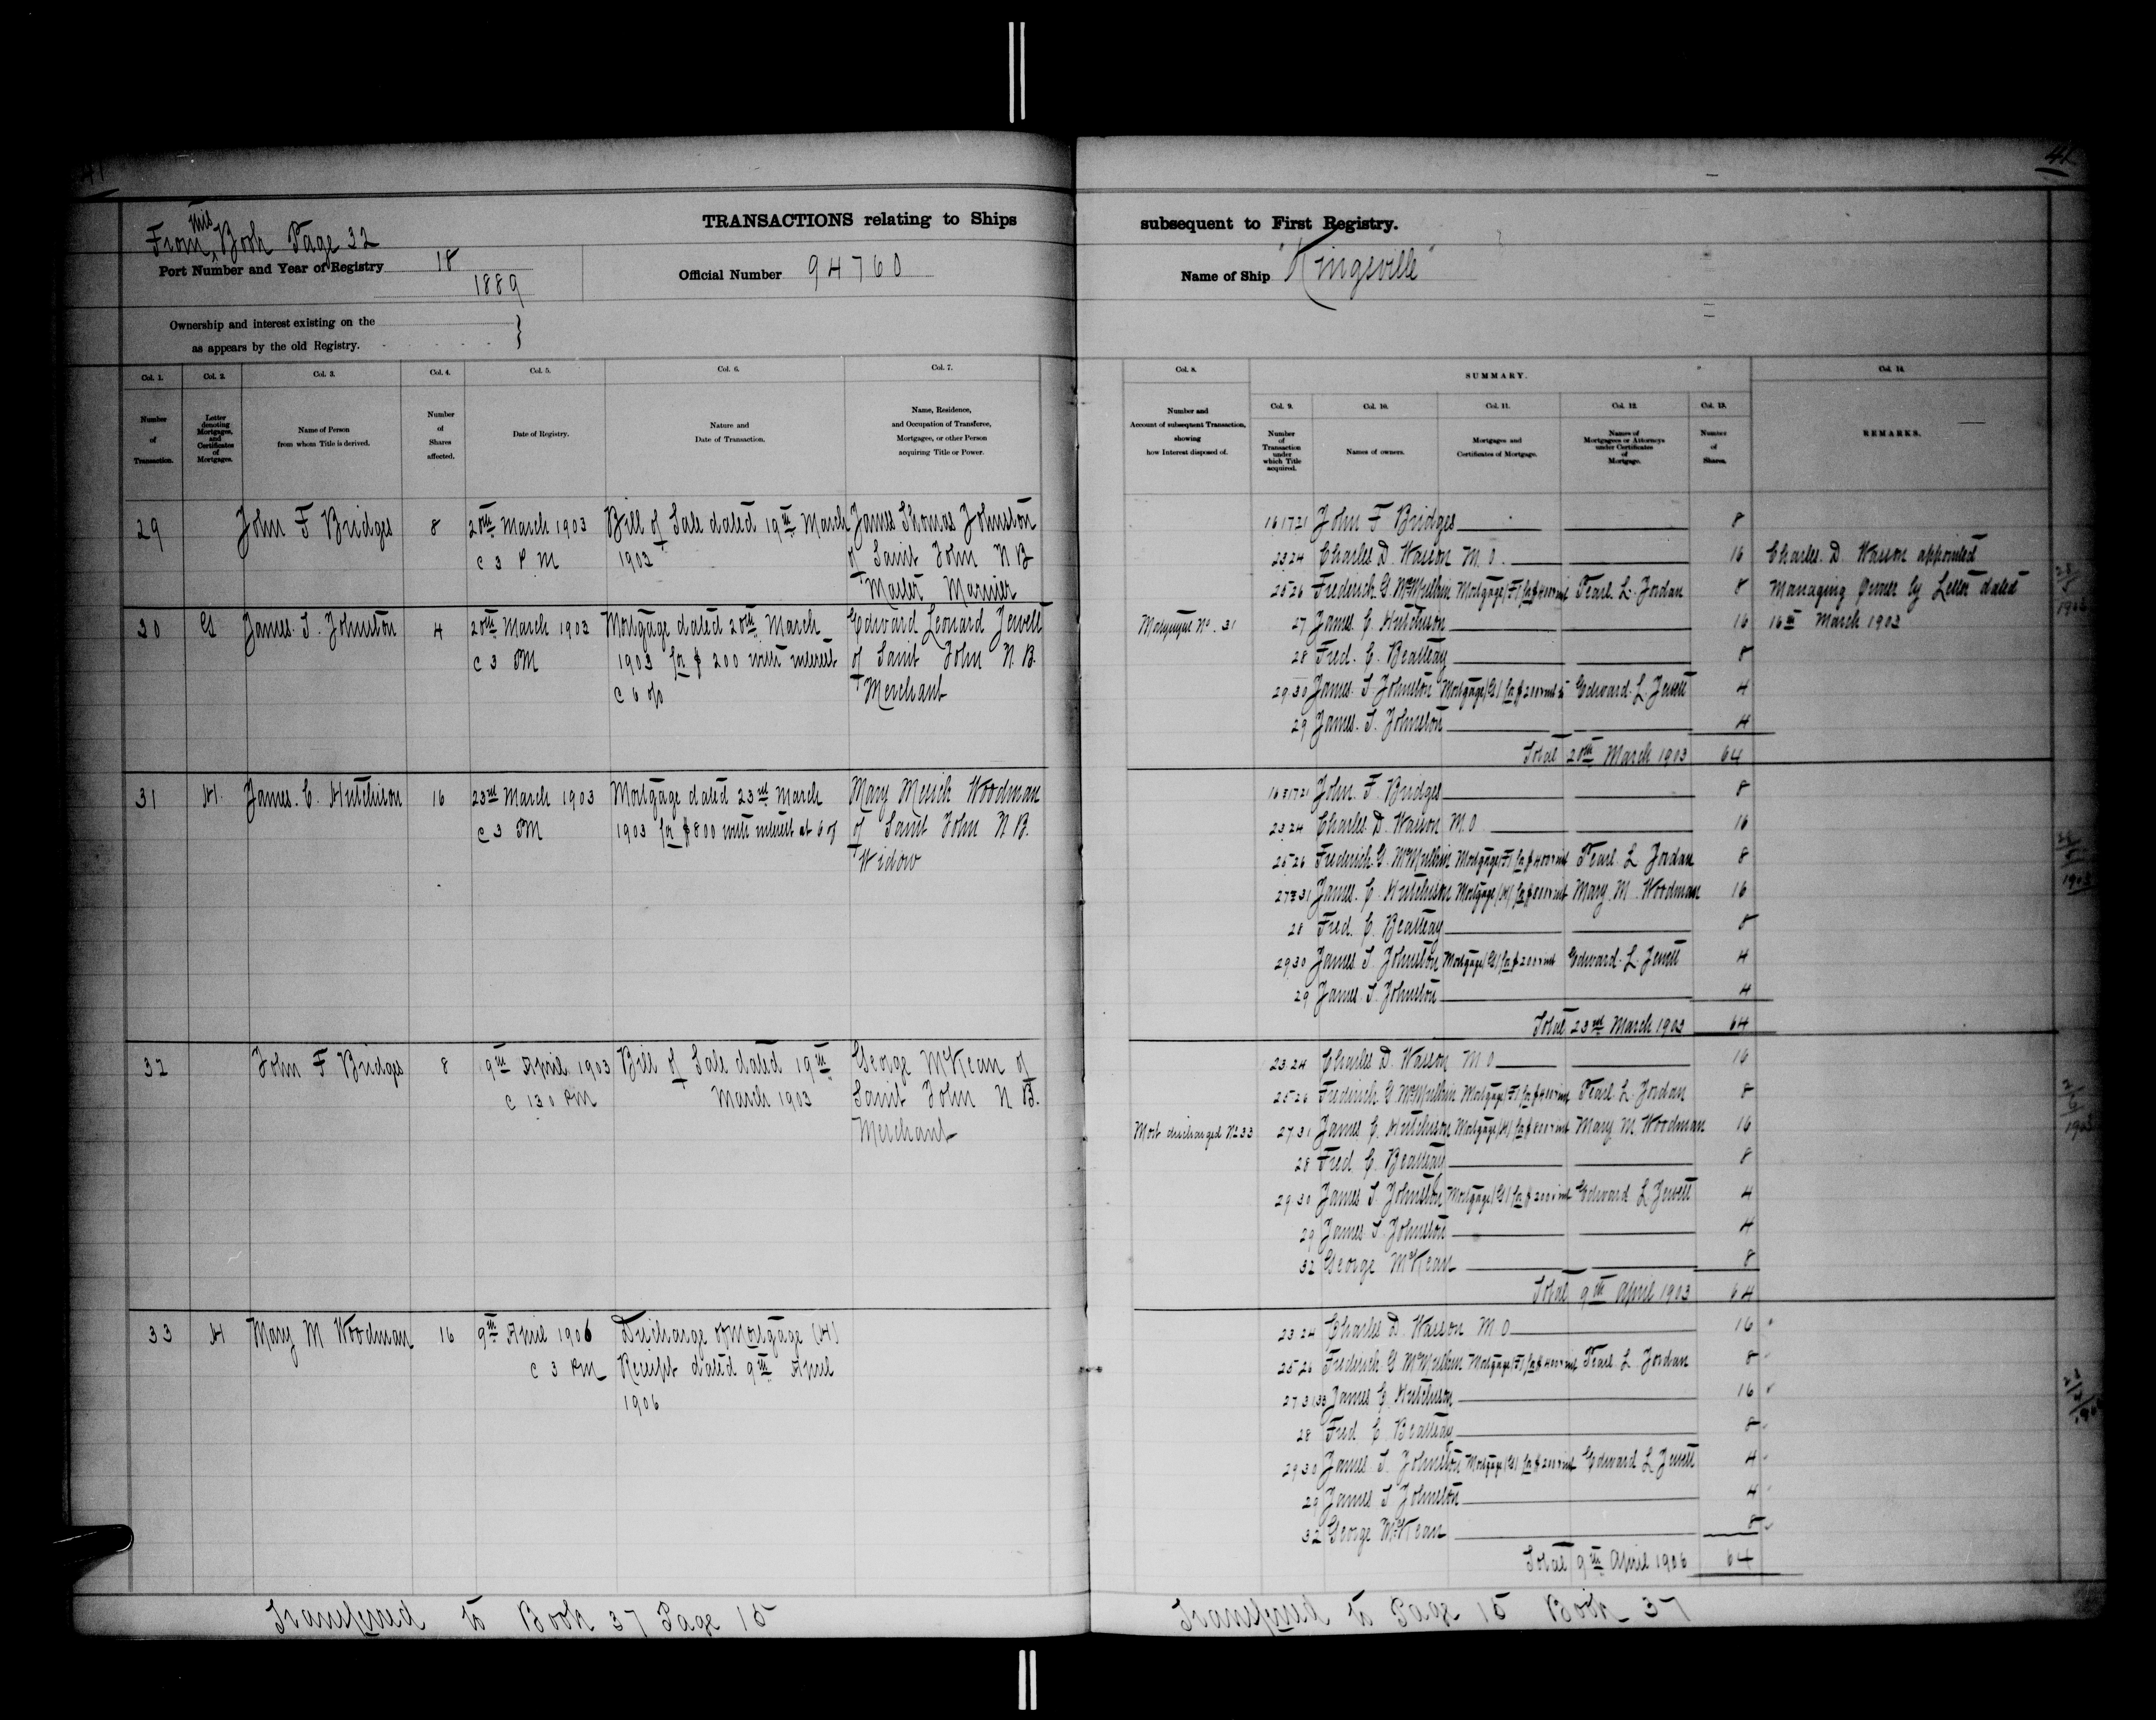 41
41
From this Book Page 32
TRANSACTIONS relating to Ships
subsequent to First Registry.
Port Number and Year of Registry 18
1889
Official Number 94760
Name of Ship "Kingsville"
Ownership and interest existing on the
as appears by the old Registry.
Col. 1. Col. 2. Col. 3. Col. 4. Col. 5. Col. 6. Col. 7.
Number of Transaction.
Letter denoting Mortgages, and Certificates of Mortgages.
Name of Person from whom Title is derived.
Number of Shares affected.
Date of Registry.
Nature and Date of Transaction.
Name, Residence, and Occupation of Transferee, Mortgagee, or other Person acquiring Title or Power.
29 John F Bridges 8 20th March 1903 Bill of Sale dated 19th March James Thomas Johnston
c 3 P M 1903 of Saint John N B
Master Marnier
30 G James. T. Johnston 4 20th March 1903 Mortgage dated 20th March Edward Leonard Jewett
c 3 PM 1903 for $ 200 with interest of Saint John N. B.
c 6 o/o Merchant
31 H. James. C. Hutchison 16 23rd March 1903 Mortgage dated 23rd March Mary Woodman
c 3 PM 1903 for $800 with interest at 6 of Saint John N. B.
Widow
32 John F Bridges 8 9th April 1903 Bill of Sale dated 19th George McKean of
c 130 PM March 1903 Saint John N B.
Merchant
33 H Mary M Woodman 16 9th April 1906 Discharge of Mortgage (H)
c 3 PM Receipt dated 9th April
1906
Transferred to Book 37 Page 15
Col. 8.
SUMMARY.
Col. 14.
Col. 9. Col. 10. Col. 11. Col. 12. Col. 13.
Number and Account of subsequent Transaction, showing how Interest disposed of.
Number of Transaction under which Title acquired.
Names of owners.
Mortgages and Certificates of Mortgage.
Names of Mortgagees or Attorneys under Certificates of Mortgage.
Number of Shares.
REMARKS.
16 17 21 John F Bridges 8
23 24 Charles D. Wasson M. O. 16 Charles. D. Wasson appointed
25 26 Frederick G. McMulkin Mortgage (F) for $400 & int Pearl. L. Jordan 8 Managing Owner by Letter dated
Mortgage No. 31 27 James. C. Hutchison 16 16th March 1903
28 Fred. C. Beatteay 8
29 30 James. T. Johnston Mortgage (G) for $200 & int Edward. L. Jewett 4
29 James. T. Johnston 4
Total 20th March 1903 64
16 & 17 21 John. F Bridges 8
23 24 Charles. D. Wasson M. O 16
25 26 Frederick. G. McMulkin Mortgage (F) for $400 & int Pearl. L. Jordan 8
27 & 31 James. C. Hutchison Mortgage (H) for $800 & int Mary. M. Woodman 16
28 Fred. C. Beatteay 8
29 30 James. T. Johnston Mortgage (G) for $200 & int Edward. L. Jewett 4
29 James. T. Johnston 4
Total 23rd March 1903 64
23 24 Charles D. Wasson M O 16
25 26 Frederick. G. McMulkin Mortgage (F) for $400 & int Pearl. L. Jordan 8
Mort discharged No 33 27 31 James C. Hutchison Mortgage (H) for $800 & int Mary M. Woodman 16
28 Fred. C. Beatteay 8
29 30 James T. Johnston Mortgage (G) for $200 & int Edward L Jewett 4
29 James T. Johnston 4
32 George McKean 8
Total 9th April 1903 64
23 24 Charles D. Wasson M O 16
25 26 Frederick G McMulkin Mortgage (F) for $400 & int Pearl L. Jordan 8
27 31 33 James C. Hutchison 16
28 Fred C Beatteay 8
29 30 James T. Johnston Mortgage (G) for $200 & int Edward L Jewett 4
29 James T Johnston 4
32 George McKean 8
Total 9th April 1906 64
Transferred to Page 15 Book 37